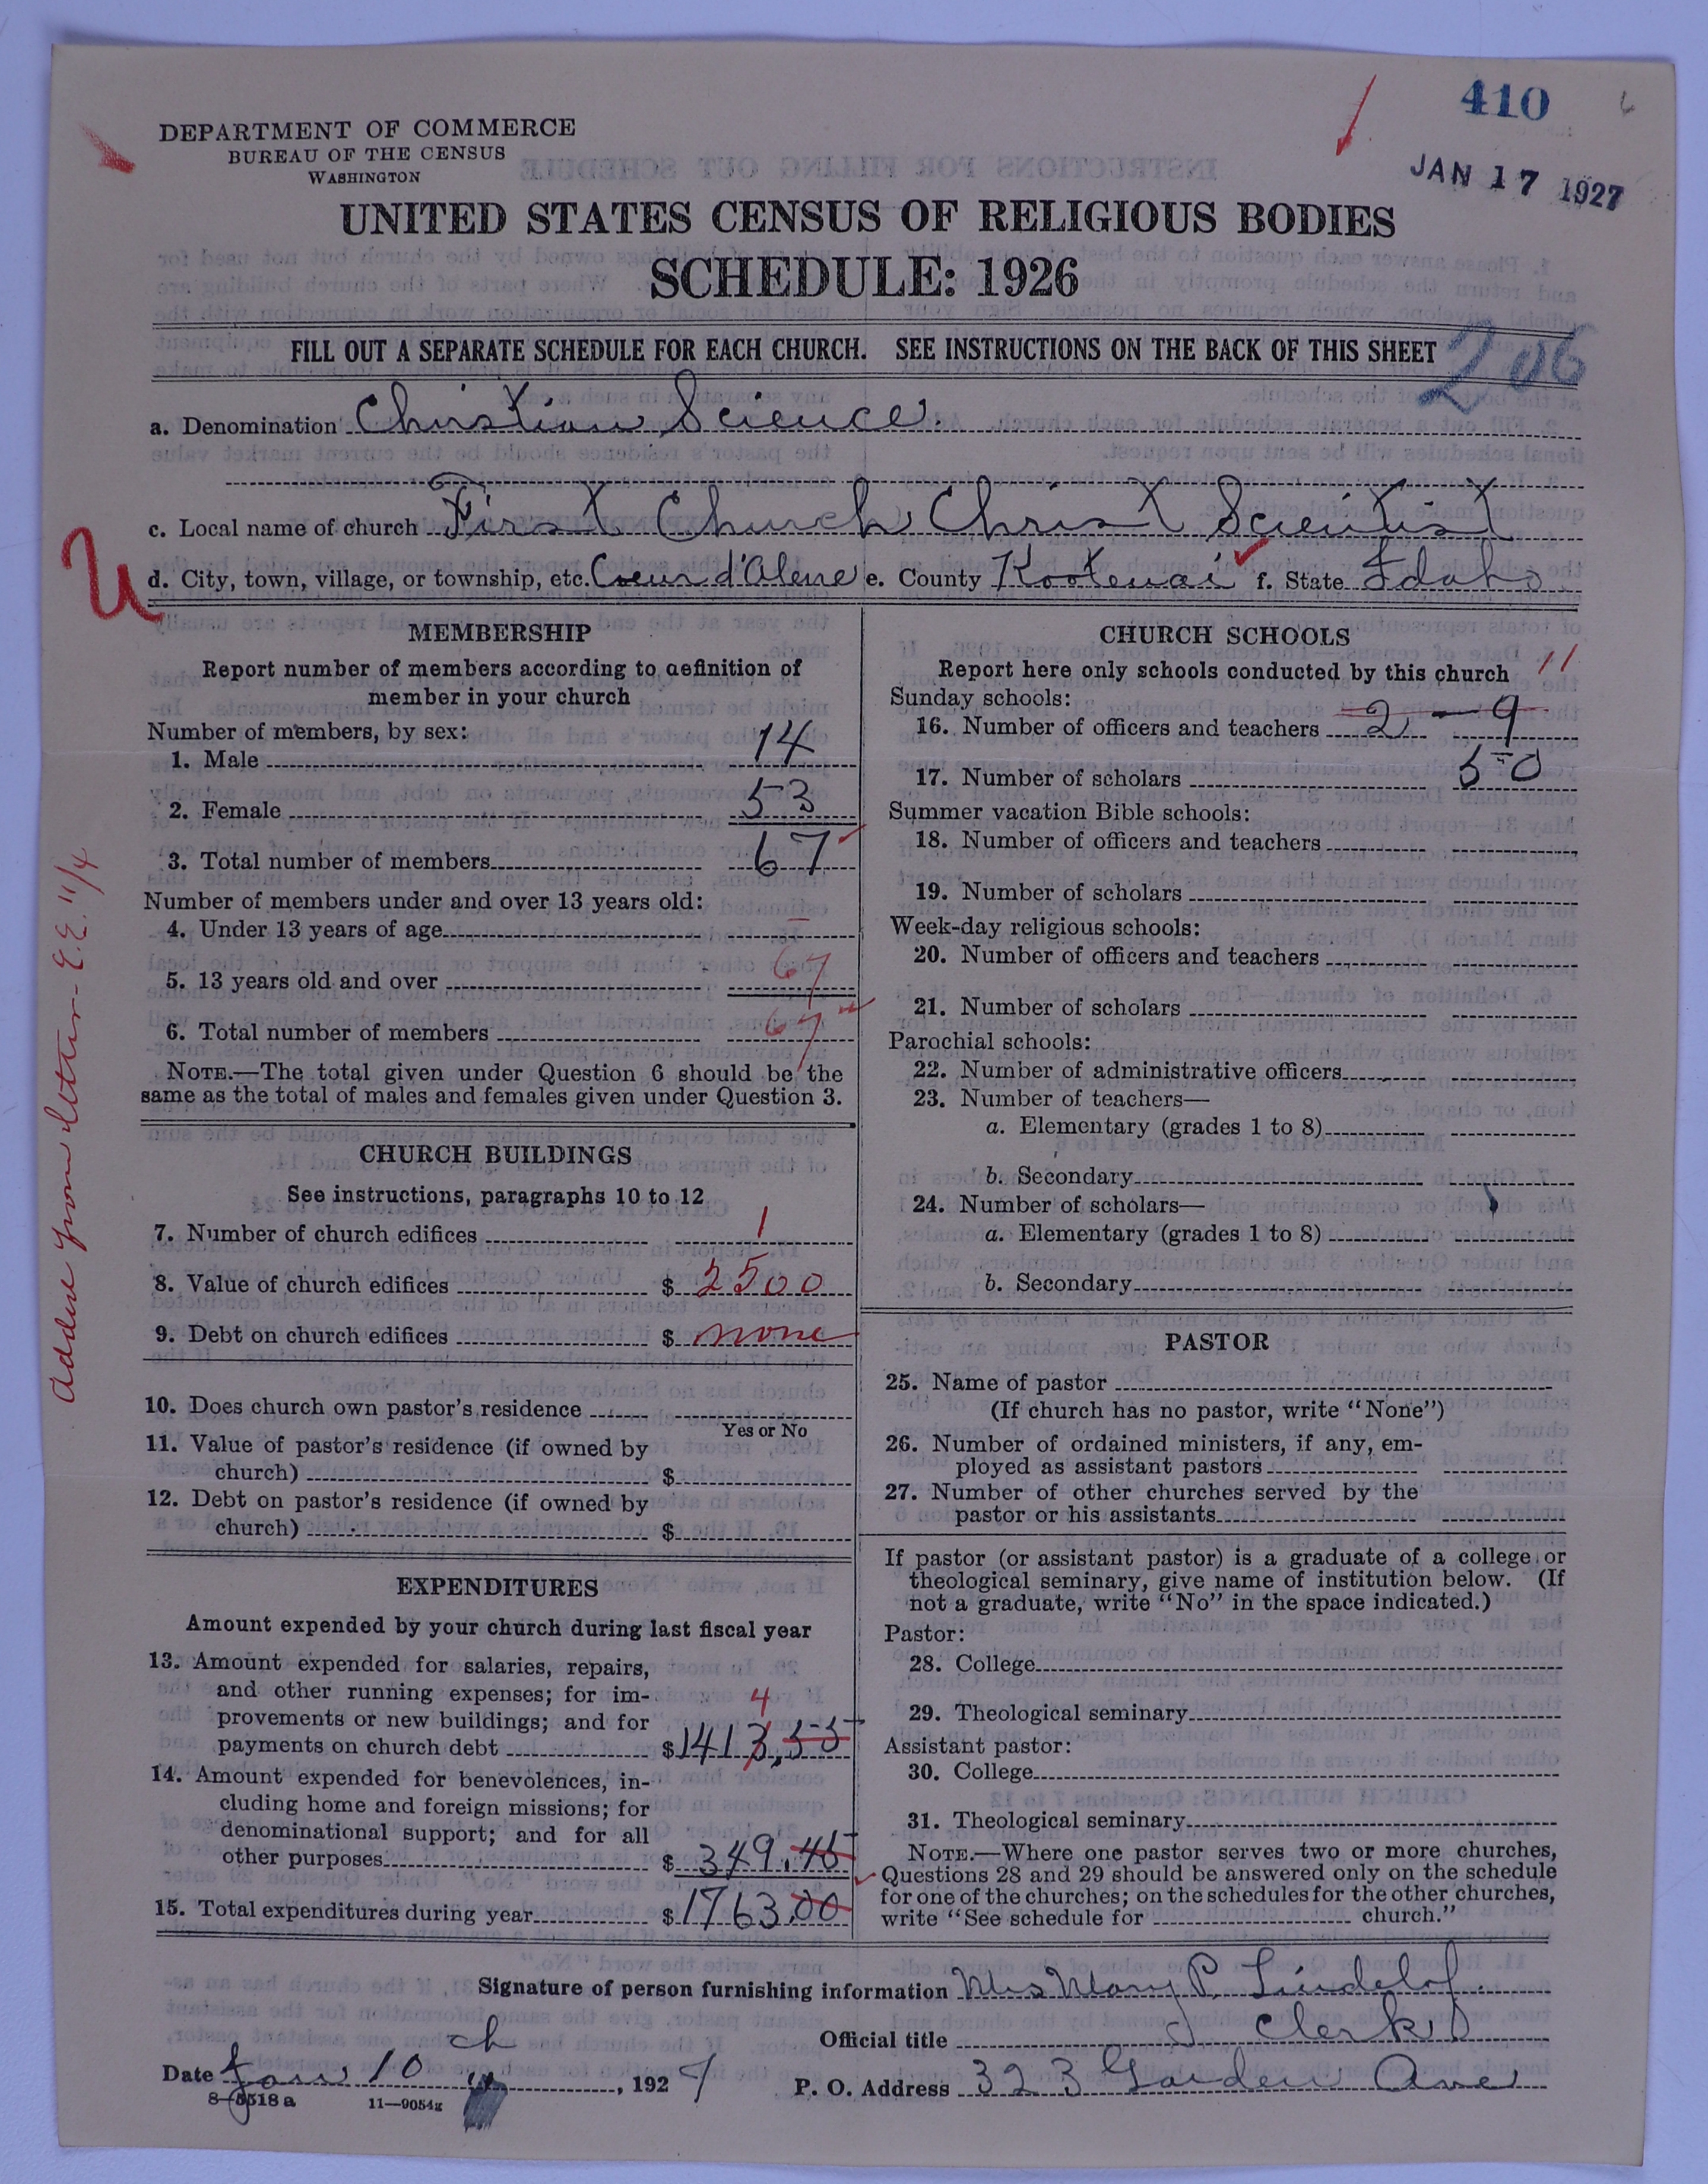 410
JAN 17 1927
DEPARTMENT OF COMMERCE
BUREAU OF THE CENSUS
WASHINGTON
UNITED STATES CENSUS OF RELIGIOUS BODIES
SCHEDULE: 1926
FILL OUT A SEPARATE SCHEDULE FOR EACH CHURCH. SEE INSTRUCTIONS ON THE BACK OF THIS SHEET
206
a. Denomination Christian Science.
c. Local name of church First Church Christ Scientist
U
d. City, town, village, or township, etc. Coeur d'Alene e. County Kootenai f. State Idaho
MEMBERSHIP
Report number of members according to definition of
member in your church
Number of members, by sex:
1. Male 14
2. Female 53
3. Total number of members 67
Number of members under and over 13 years old:
4. Under 13 years of age –
5. 13 years old and over 67
6. Total number of members 67
NOTE.—The total given under Question 6 should be the
same as the total of males and females given under Question 3.
Added from letter- E.E. 11/4
CHURCH BUILDINGS
See instructions, paragraphs 10 to 12
7. Number of church edifices 1
8. Value of church edifices $ 2500
9. Debt on church edifices $ none
10. Does church own pastor's residence
Yes or No
11. Value of pastor's residence (if owned by
church) $
12. Debt on pastor's residence (if owned by
church) $
EXPENDITURES
Amount expended by your church during last fiscal year
13. Amount expended for salaries, repairs,
and other running expenses; for im-
4
provements or new buildings; and for
payments on church debt $1413.55
14. Amount expended for benevolences, in-
cluding home and foreign missions; for
denominational support; and for all
other purposes $ 349.45
15. Total expenditures during year $1763.00
CHURCH SCHOOLS
Report here only schools conducted by this church
11
Sunday schools:
16. Number of officers and teachers 2 — 9
17. Number of scholars 50
Summer vacation Bible schools:
18. Number of officers and teachers
19. Number of scholars
Week-day religious schools:
20. Number of officers and teachers
21. Number of scholars
Parochial schools:
22. Number of administrative officers
23. Number of teachers—
a. Elementary (grades 1 to 8)
b. Secondary
24. Number of scholars—
a. Elementary (grades 1 to 8)
b. Secondary
PASTOR
25. Name of pastor
(If church has no pastor, write "None")
26. Number of ordained ministers, if any, em-
ployed as assistant pastors
27. Number of other churches served by the
pastor or his assistants
If pastor (or assistant pastor) is a graduate of a college or
theological seminary, give name of institution below. (If
not a graduate, write "No" in the space indicated.)
Pastor:
28. College
29. Theological seminary
Assistant pastor:
30. College
31. Theological seminary
NOTE.—Where one pastor serves two or more churches,
Questions 28 and 29 should be answered only on the schedule
for one of the churches; on the schedules for the other churches,
write "See schedule for church."
Signature of person furnishing information Mrs Mary P. Lindelof.
ch
Official title Clerk
Date Jan 10, 1927
P. O. Address 323 Garden Ave
8—5518 a 11—9054g